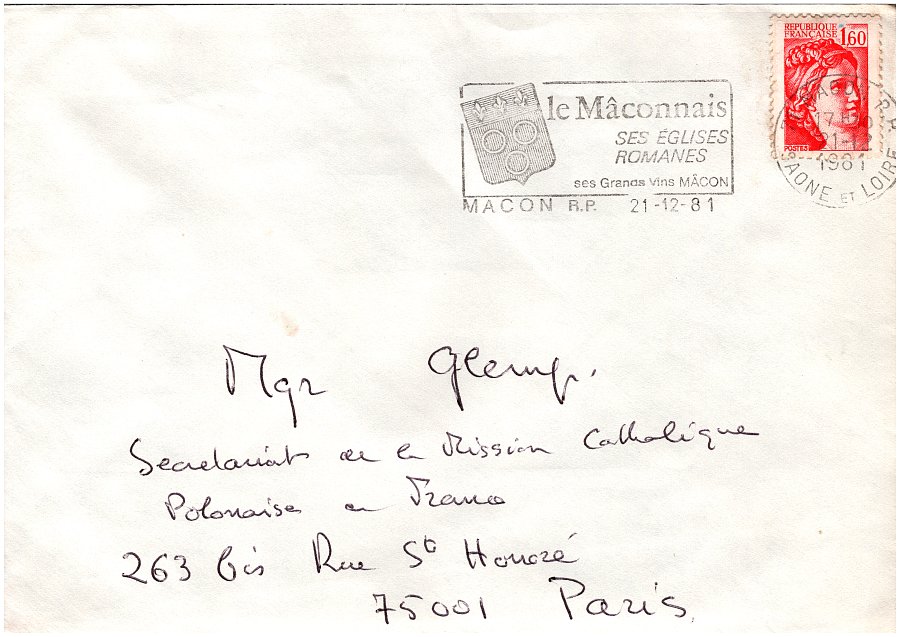 REPUBLIQUE
FRANÇAISE 1,60
POSTES
le Mâconnais
SES ÉGLISES
ROMANES
ses Grands Vins MÂCON
MACON R.P. 21-12-81
MACON R.P.
17H
21-12
1981
SAONE ET LOIRE
Mgr Glemp.
Secretariat de la Mission Catholique
Polonaise en France
263 bis Rue St Honoré
75001 Paris